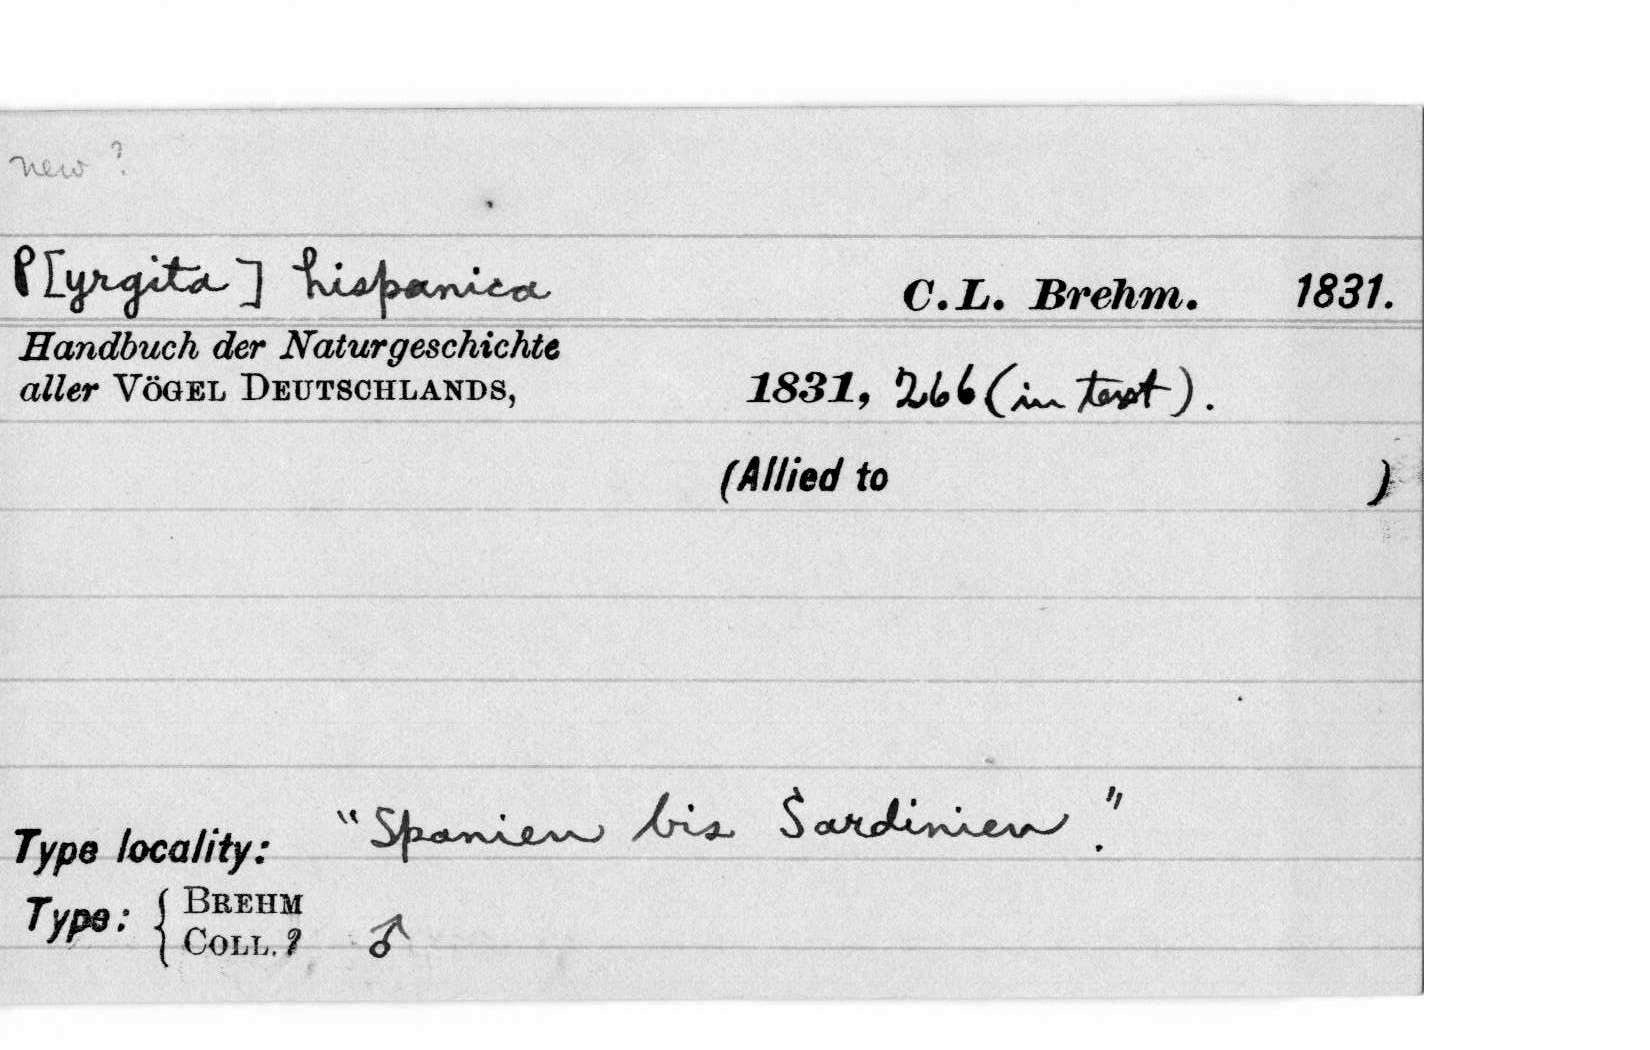 new ?
P[yrgita] hispanica C.L. Brehm. 1831.
Handbuch der Naturgeschichte
aller VÖGEL DEUTSCHLANDS, 1831, 266 (in text).
(Allied to )
Type locality: "Spanien bis Sardinien."
Type: { BREHM
COLL. ? ♂